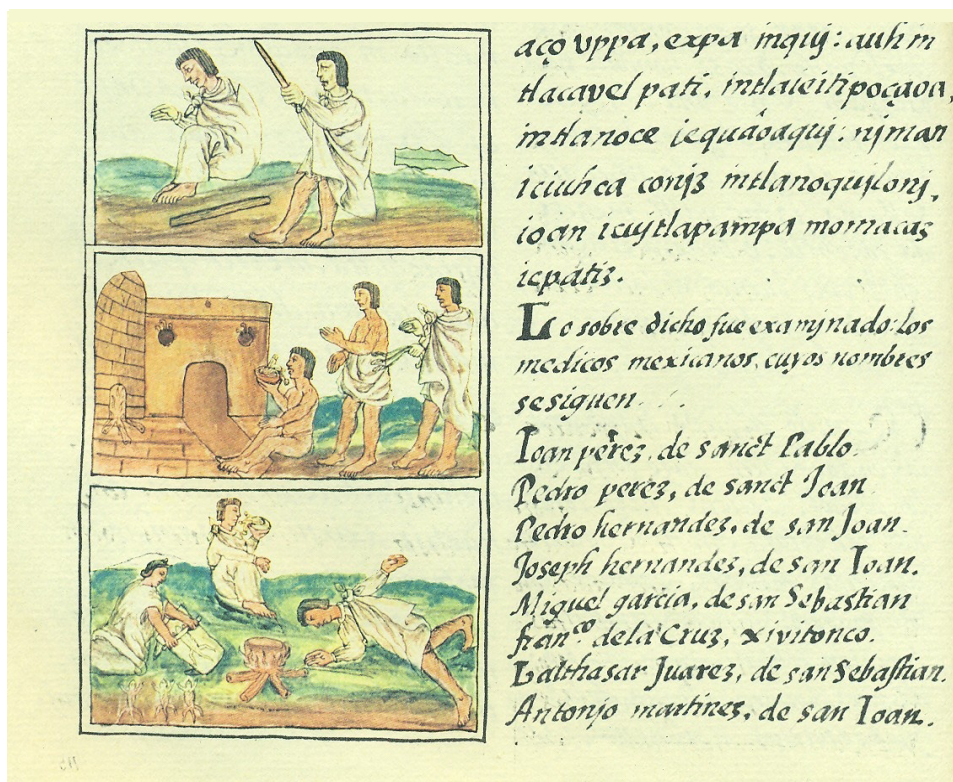 aço vppa, expa inquij: auh in
tlacavel pati, intlaieitipoçaoa,
intlanoce iequaoaquj: njman
iciuhca conjz intlanoqujlonj,
ioan icujtlapampa momacaz
icpatiz.
Lo sobre dicho fue examjnado: los
medicos mexicanos, cuyos nombres
se siguen.
Ioan perez, de sanct Pablo.
Pedro perez, de sanct Joan
Pedro hernandez, de san Joan.
Joseph hernandez, de san Ioan.
Miguel garcia, de san Sebastian
fran.co dela Cruz, xivitonco.
balthasar Juarez, de san Sebastian.
Antonjo martinez, de san Ioan.